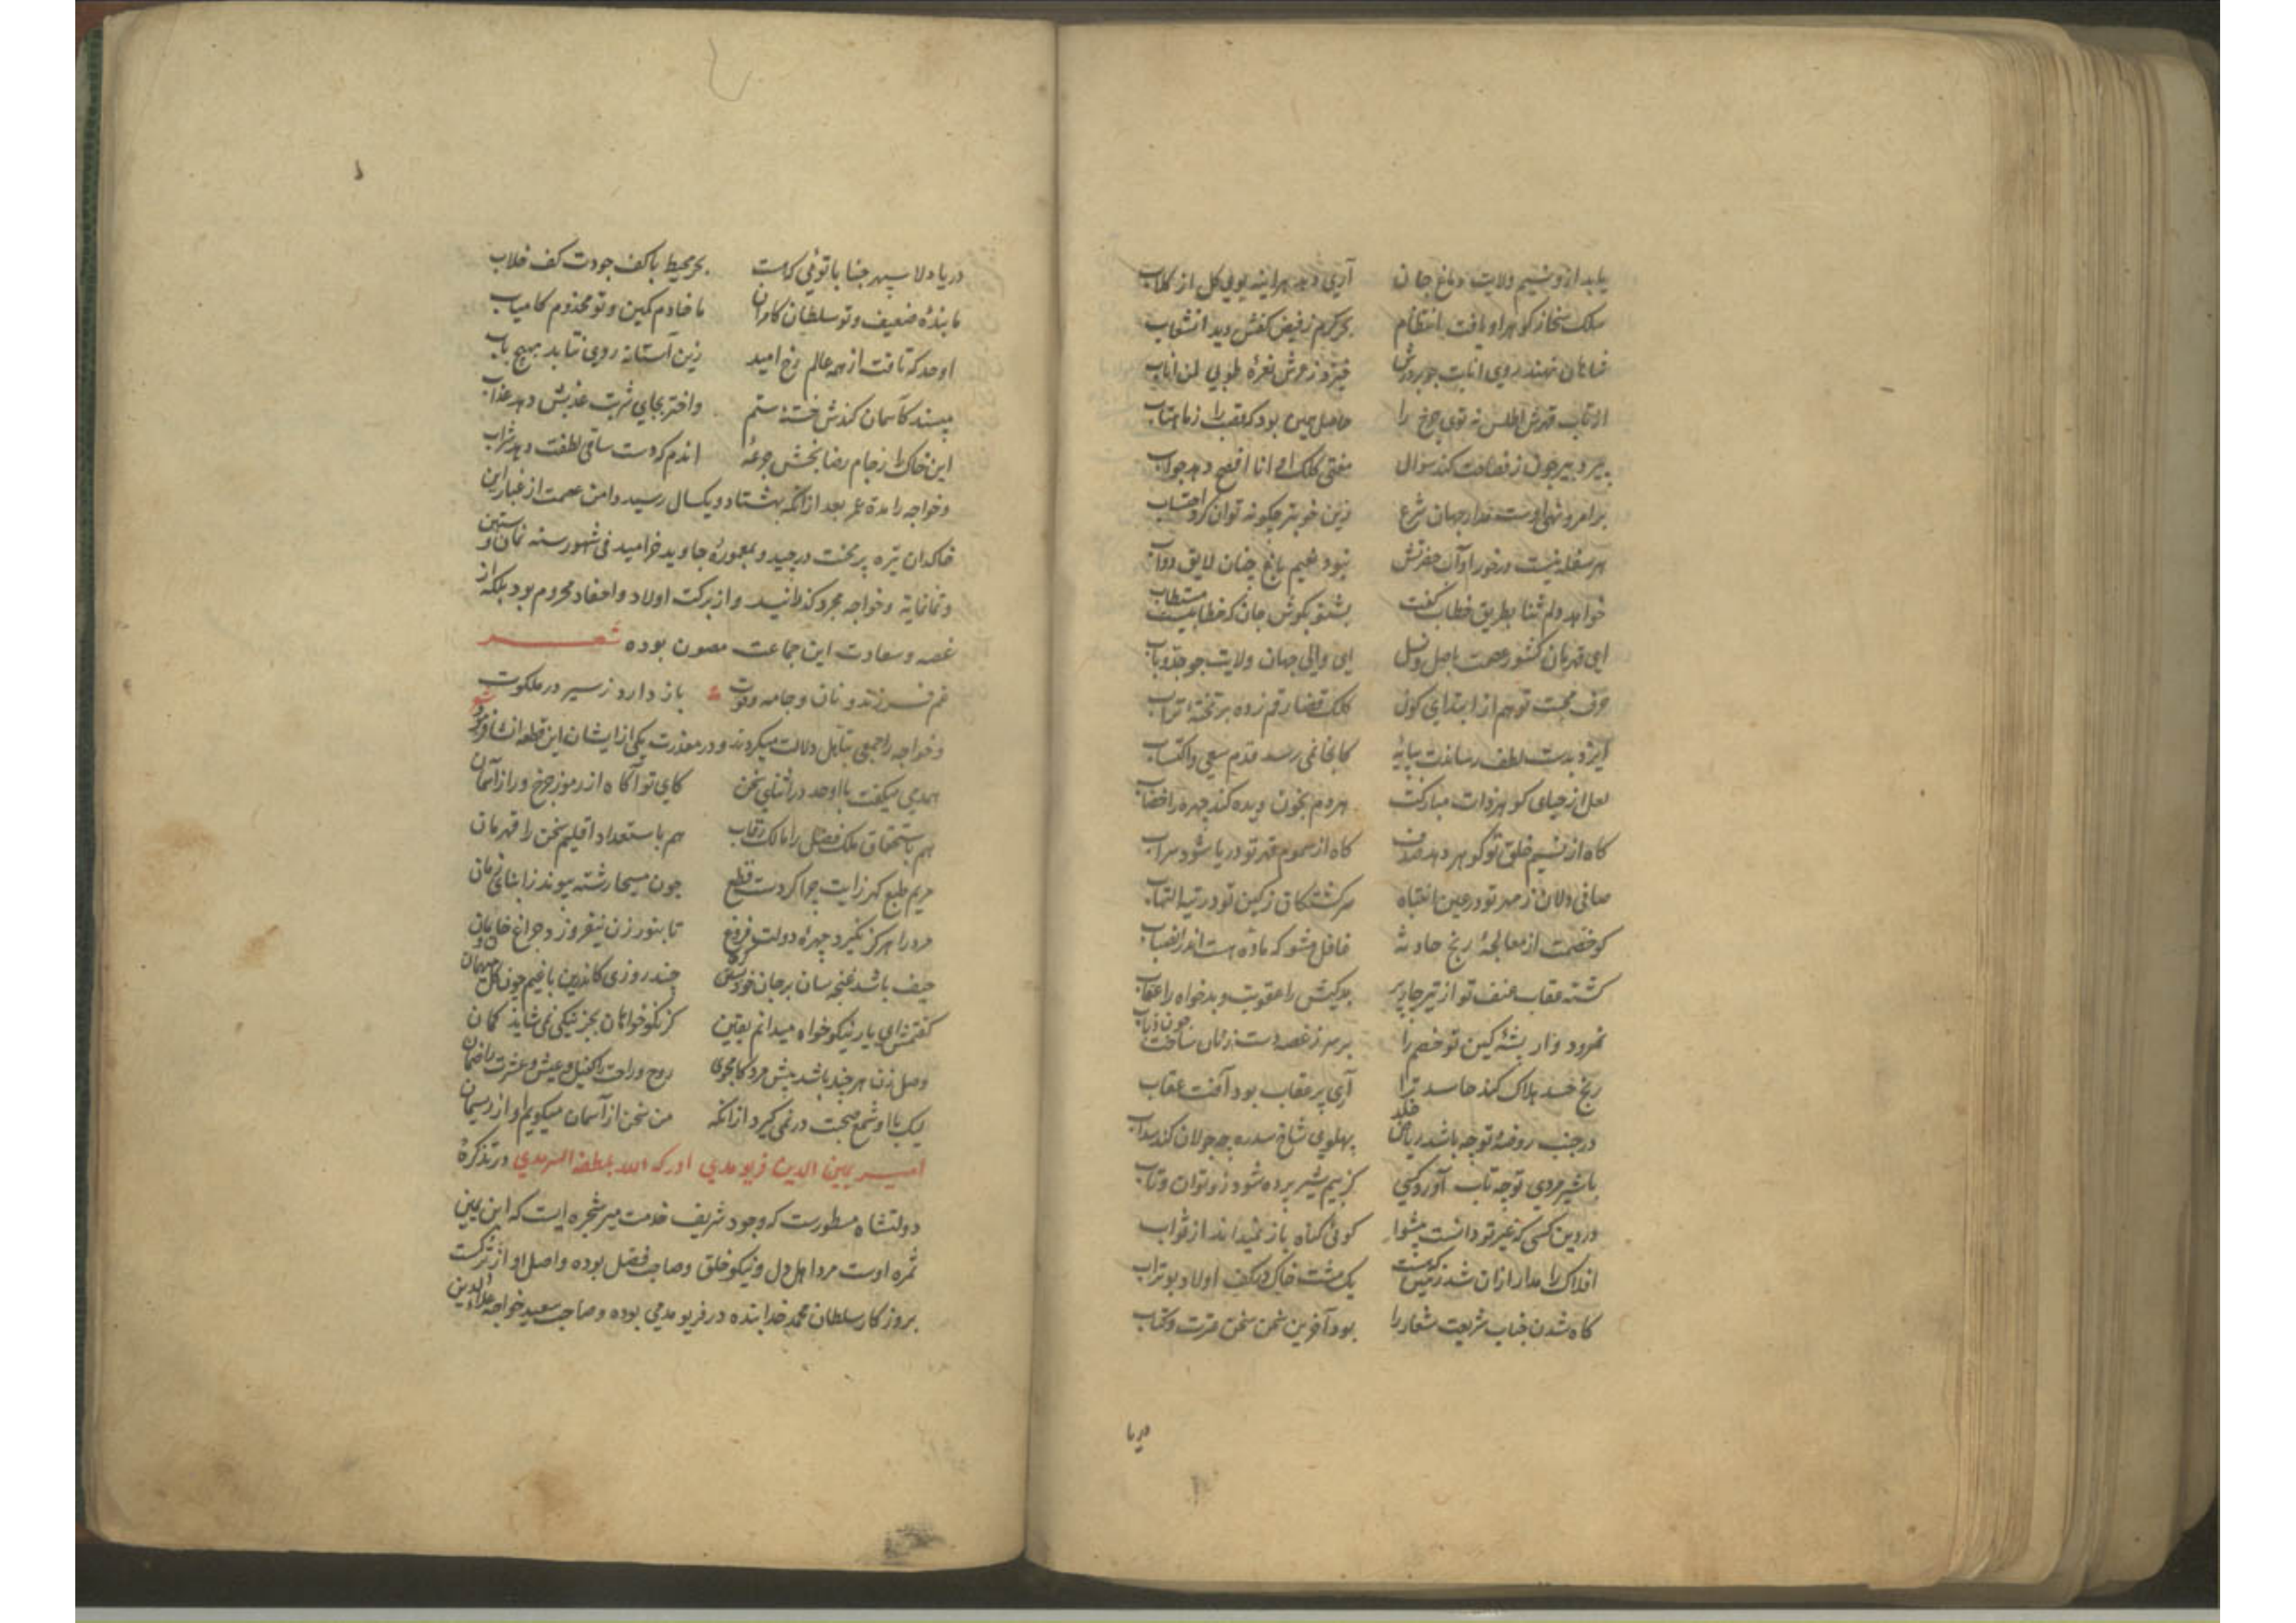 یابد ازو نسیم ولایت دماغ جان آری دهد هر اینه بوی کل از کلاب
سلک سخا ز کوهر او یافت انتظام بحر کرم ز فیض کفش دید انشعاب
شاهان نهند روی انابت جو بر درش خیزد ز عرش نعرهٔ طوبی لمن اناب
اطلس نه توی چرخ را حاصل همین بود که قصب را ز ماهتاب
فصاحت کند سوال مفتی کلک او انا افصح دهد جواب
بر امر و نهی اوست مدار جهان شرع زین خوبتر چکونه توان کرد احتساب
هر سفله نیست درخور او آن حضرتش نبود نعیم باغ جنان لایق دواب
خواهد دلم ثنا بطریق خطاب کفت بشنو بکوش جان که خطابیست مستطاب
ای قهرمان کشور عصمت باصل و نسل ای والی جهان ولایت جو جد و باب
حرف محبت تو هم از ابتدای کون کلک قضا رقم زده بر تختهٔ تراب
ایزد بدست لطف رساندت بپایهٔ کانجا نمی رسد قدم سعی و اکتساب
لعل از حیای کوهر ذات مبارکت هر دم بخون دیده کند چهره را خضاب
کاه از نسیم خلق تو کوهر دهد صدف کاه از سموم قهر تو دریا شود سراب
صافی دلان ز مهر تو در عین انتباه سرکشتکان ز کین تو در تیه التهاب
کو خصمت از معالجهٔ رنج حادثه غافل مشو که ماده هست اندر انصباب
کشته عقاب عنف تو از تیر چارپر بدکیش را عقوبت و بدخواه را عقاب
نمرود وار پشهٔ کین تو خصم را بر سر ز غصه دست زنان ساخت چون ذباب
رنج حسد هلاک کند حاسد ترا آری پر عقاب بود آفت عقاب
در جنب روضهٔ تو چه باشد ریاض خلد پهلوی شاخ سدره چه جولان کند سداب
با شیر مردی تو چه تاب آورد کسی کز بیم شیر پرده شود زو توان و تاب
در دین کسی که غیر تو دانست پیشوا کوئی کناه باز نمیداند از ثواب
افلاک را مدار از آن شد زمین که هست یک مشت خاک در کف اولاد بوتراب
کاه شدن جناب شریعت شعار را بود آفرین سخن عترت و کتاب
دریا
دریا دلا سپهر جنابا توئی که هست بحر محیط با کف جودت کف خلاب
ما بندهٔ ضعیف و تو سلطان کامران ما خادم کمین و تو مخدوم کامیاب
اوحد که تافت از همه عالم رخ امید زین آستانه روی نتابد بهیچ باب
مپسند کآسمان کندش خستهٔ ستم و اختر بجای شربت عذبش دهد عذاب
این خاک را ز جام رضا بخش جرعهٔ اندم که دست ساقی لطفت دهد شراب
و خواجه را مدة عمر بعد از انکه بهشتاد و یکسال رسید دامن عصمت از غبار این
خاکدان تیره پر محنت درچید و بمعمورهٔ جاوید خرامید فی شهور سنه ثمان و ستین
و ثمانمایة و خواجه مجرد کذرانید و از برکت اولاد و احفاد محروم بود بلکه از
غصه و سعادت این جماعت مصون بوده شعر
غم فرزند و نان و جامه و قوت باز دارد ز سیر در ملکوت
و خواجه را جمعی بتاهل دلالت میکردند و در معذرت یکی از ایشان این قطعه انشا فرمود
همدمی میکفت با اوحد در اثنای سخن کای تو آکاه از رموز چرخ و راز آسمان
هم باستحقاق ملک فضل را مالک رقاب هم باستعداد اقلیم سخن را قهرمان
مریم طبع کهرزایت چرا کردست قطع چون مسیحا رشته پیوند ز ابنای زمان
مرد را هرکز نکیرد چهرهٔ دولت فروغ تا بنور زن نیفروزد چراغ خانمان
حیف باشد غنچه سان بر جان خود بستن کره چند روزی کاندرین باغیم چون کل میهمان
کفتمش ای یار نیکوخواه میدانم یقین کز نکوخواهان بجز نیکی نمی شاید کمان
وصل زن هر چند باشد پیش مرد کامجوی روح و راحت را کفیل و عیش و عشرت را ضمان
لیک با او شمع صحبت در نمی کیرد از انکه من سخن از آسمان میکویم او از ریسمان
امیر یمین الدین فریومدی ادرکه الله بلطفه السرمدی در تذکرهٔ
دولتشاه مسطورست که وجود شریف خدمت میر شجره ایست که ابن یمین
ثمره اوست مرد اهل دل و نیکو خلق و صاحب فضل بوده و اصل او از ترکست
بروزکار سلطان محمد خدابنده در فریومدی بوده و صاحب سعید خواجه علاءالدین